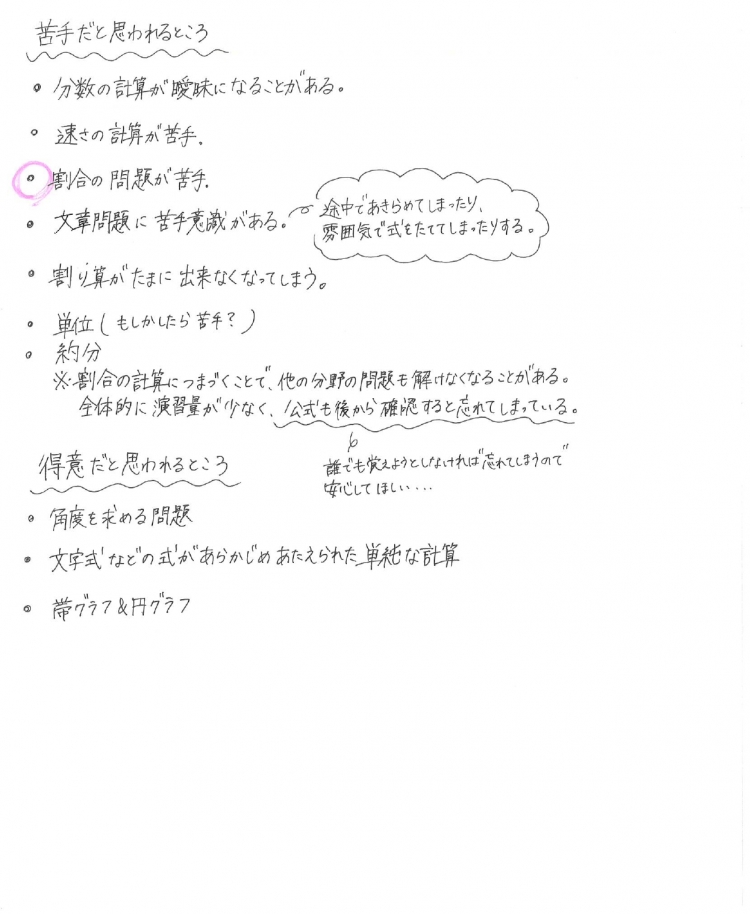 苦手だと思われるところ
・分数の計算が曖昧になることがある。
・速さの計算が苦手.
・割合の問題が苦手.
・文章問題に苦手意識がある。
途中であきらめてしまったり、
雰囲気で式をたててしまったりする。
・割り算がたまに出来なくなってしまう。
・単位(もしかしたら苦手?)
・約分
※割合の計算につまづくことで、他の分野の問題も解けなくなることがある。
全体的に演習量が少なく、公式も後から確認すると忘れてしまっている。
誰でも覚えようとしなければ忘れてしまうので
安心してほしい...
得意だと思われるところ
・角度を求める問題
・文字式などの式があらかじめあたえられた単純な計算
・帯グラフ&円グラフ